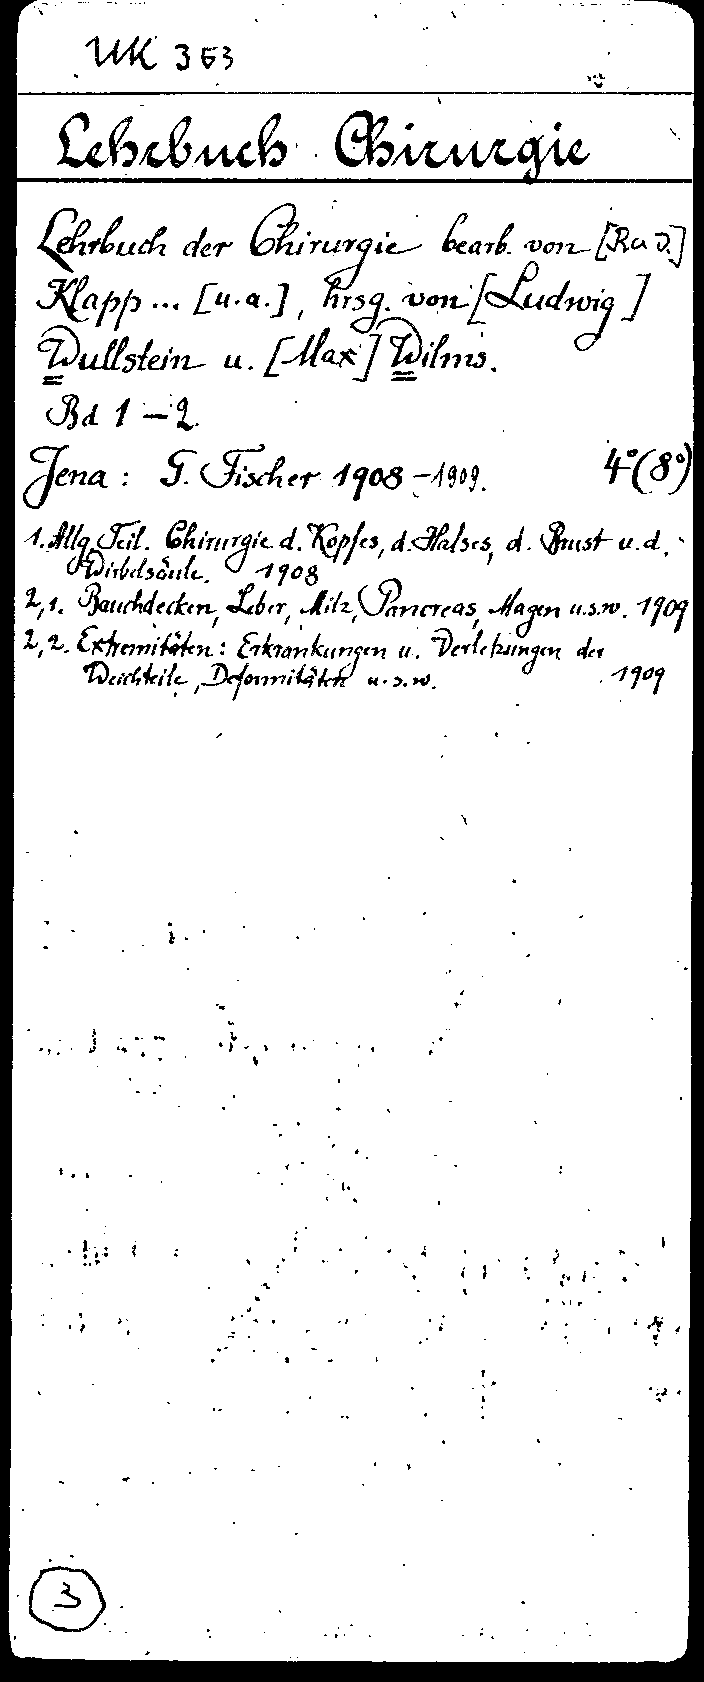 UK 353
Lehrbuch Chirurgie
Lehrbuch der Chirurgie bearb. von [Rud.]
Klapp... [u.a.], hrsg. von [Ludwig]
Wullstein u. [Max] Wilms.
Bd 1-2.
Jena: G. Fischer 1908-1909. 4°(8°)
1. Allg Teil. Chirurgie d. Kopfes, d. Halses, d. Brust u. d.
Wirbelsäule. 1908
2,1. Bauchdecken, Leber, Milz, Pancreas, Magen u.s.w. 1909
2,2. Extremitäten: Erkrankungen u. Verletzungen der
Weichteile, Deformitäten u.s.w. 1909
3